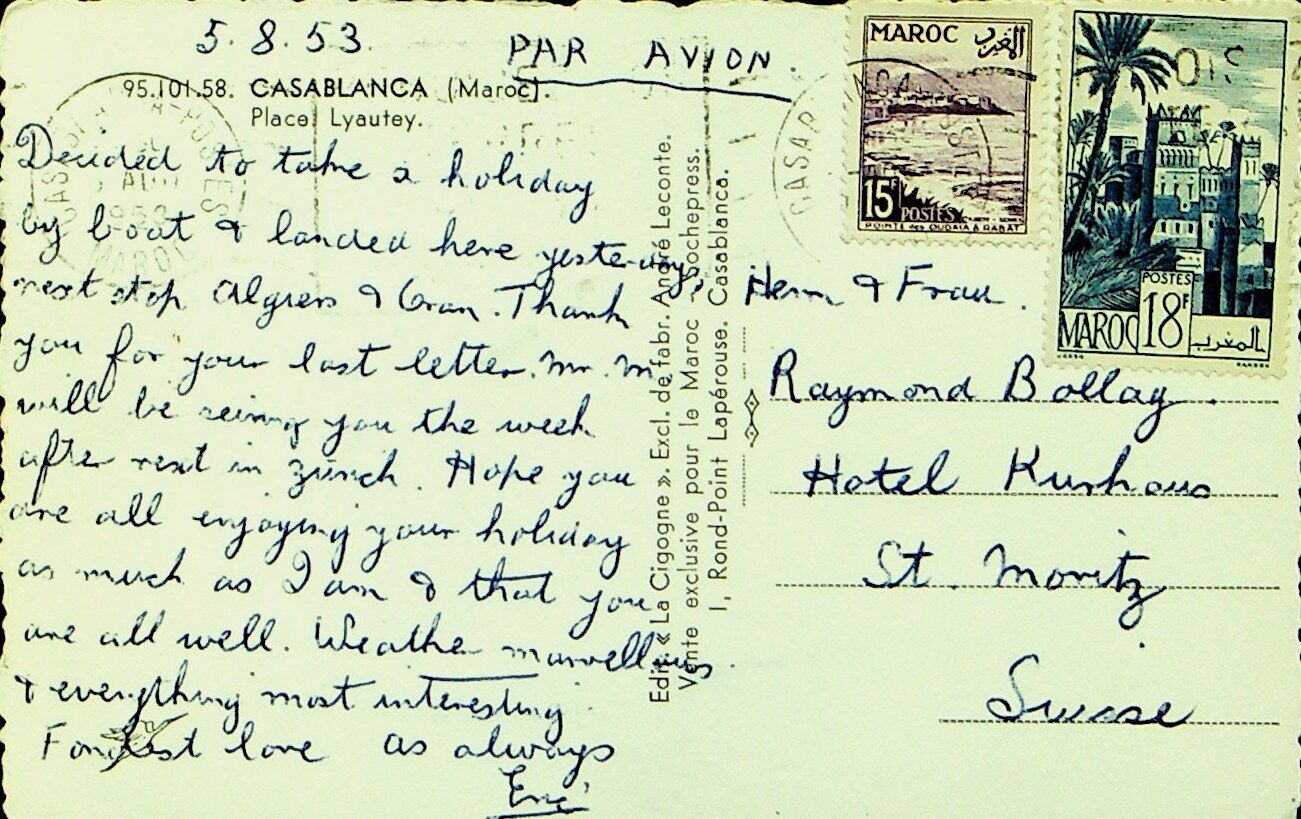 5.8.53.
PAR AVION.
95.101.58. CASABLANCA (Maroc).
Place Lyautey.
Decided to take a holiday
by boat & landed here yesterday,
next stop Algiers & Oran. Thank
you for your last letter. Mr. M
will be seeing you the week
after next in Zürich. Hope you
are all enjoying your holiday
as much as I am & that you
are all well. Weather marvellous.
& everything most interesting.
Fondest love as always
Eric
Edit. « La Cigogne ». Excl. de fabr. André Leconte.
Vente exclusive pour le Maroc : Sochepress.
1, Rond-Point Lapérouse. Casablanca.
MAROC المغرب
15F POSTES
POINTE des OUDAIA A RABAT
POSTES
MAROC 18F المغرب
Herrn & Frau.
Raymond Bollag.
Hotel Kurhaus
St. Moritz
Suisse